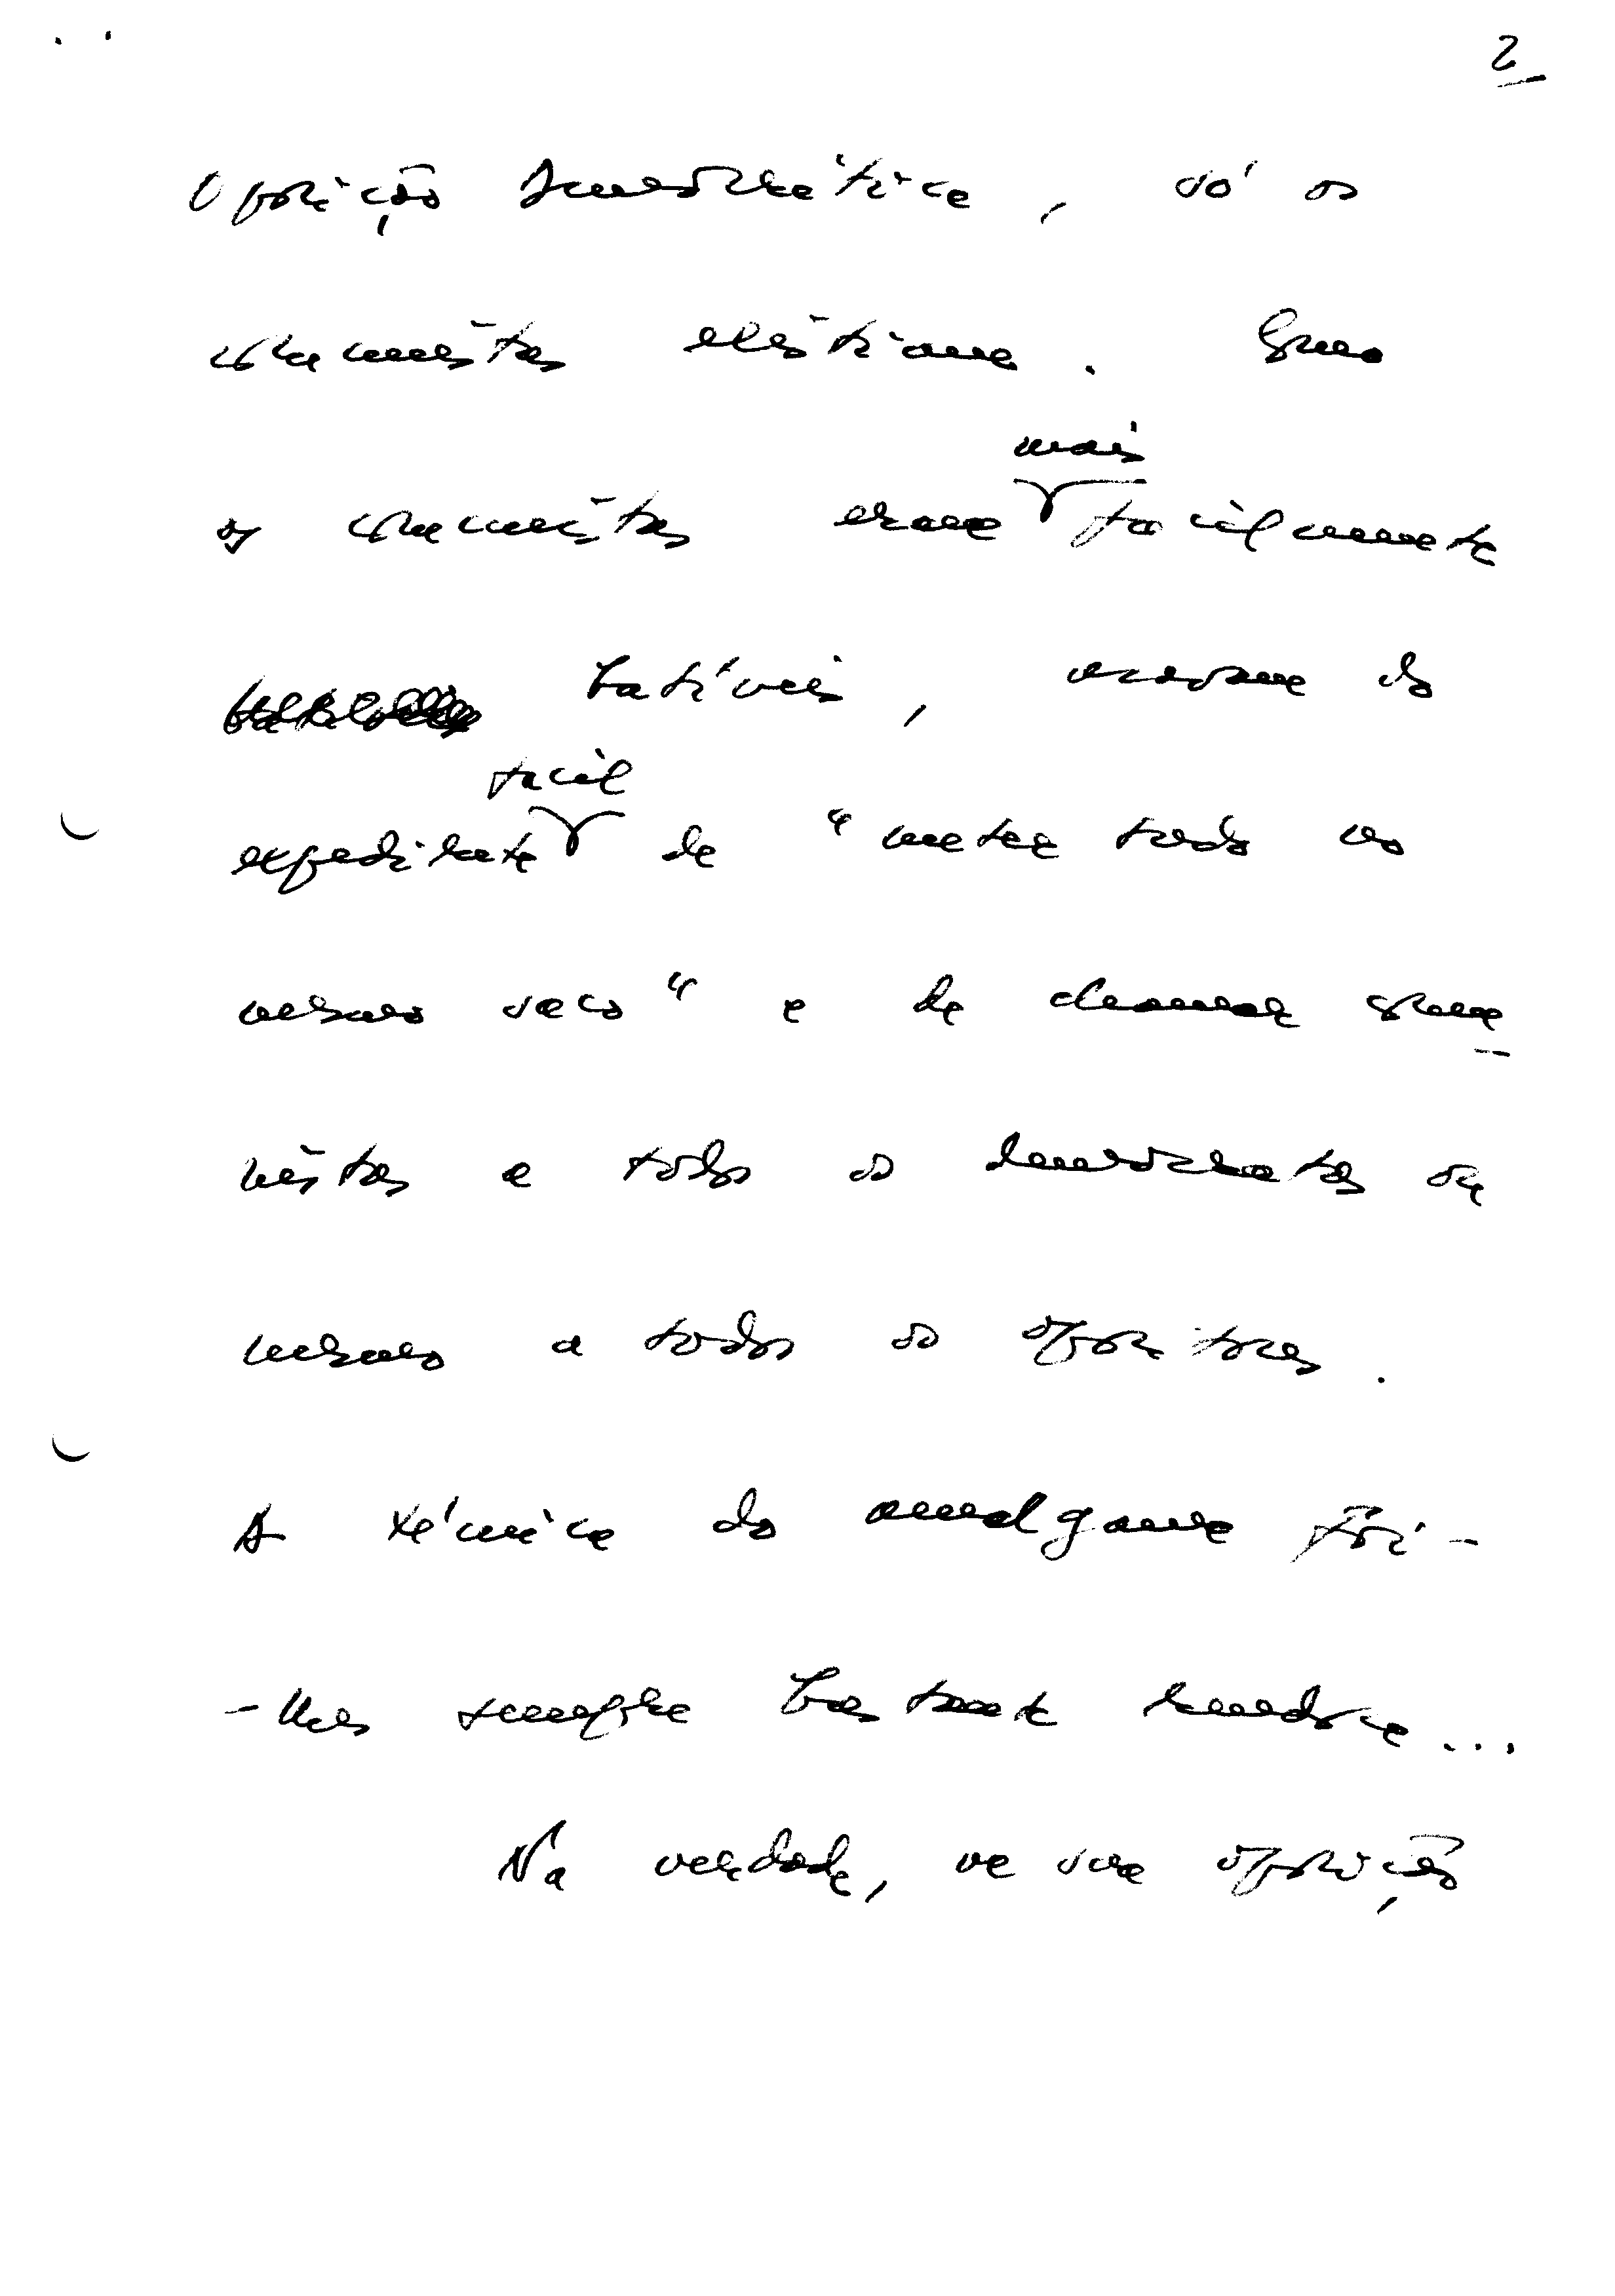 2
Oposição Democrática, só os
comunistas existiam. Como
mais
os comunistas eram facilmente
batíveis, usavam do
fácil
expediente de "meter tudo no
mesmo saco" e de chamar comu-
nistas a todos os democratas ou
mesmo a todos os opositores.
A técnica do amalgama foi-
-lhes sempre bastante
Na verdade, na sua oposição